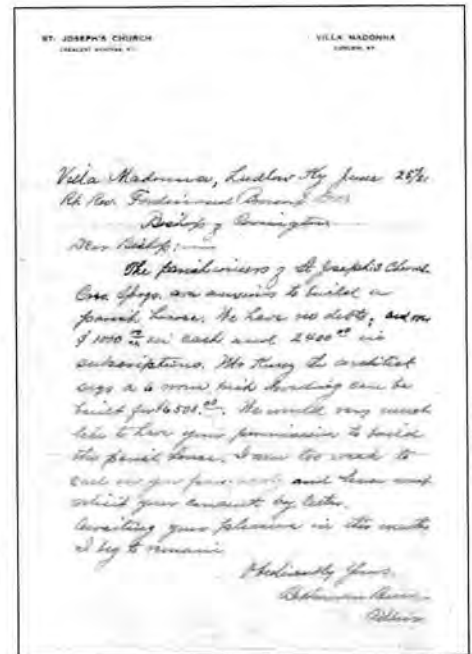 ST. JOSEPH'S CHURCH VILLA MADONNA
CRESCENT SPRINGS, KY. LUDLOW, KY.
Villa Madonna, Ludlow Ky June 25/21
Rt. Rev. Ferdinand
Bishop of Covington
Dear Bishop:
The parishioners of St Joseph's Church
Cres. Spgs. are anxious to build a
parish house. We have no debts, and over
$1000 in cash and 2400 00 in
subscriptions. the architect
says a 6 room brick can be
built for 6500. 00. We would very much
like to have your permission to build
the parish house. I am too weak to
call on you personally and hence must
solicit your consent by letter.
Awaiting your pleasure in this matter
I beg to remain
Obediently yours,